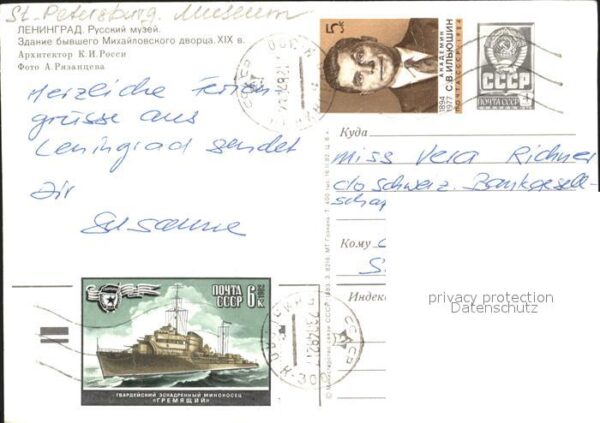 St. Petersburg. Museum
ЛЕНИНГРАД. Русский музей.
Здание бывшего Михайловского дворца. XIX в.
Архитектор К.И.Росси
Фото А. Рязанцева
Herzliche Ferien
grüsse aus
Leningrad sendet
Dir
Susanne
5к
АКАДЕМИК
С.В.ИЛЬЮШИН
1894
1977
ПОЧТА СССР 1984
СССР
ПОЧТА СССР
Куда
Miss Vera Richner
c/o Schweiz. Bankgesell-
schaf
Кому
S
Индекс
privacy protection
Datenschutz
ПОЧТА
СССР
6к
ГВАРДЕЙСКИЙ ЭСКАДРЕННЫЙ МИНОНОСЕЦ
"ГРЕМЯЩИЙ"